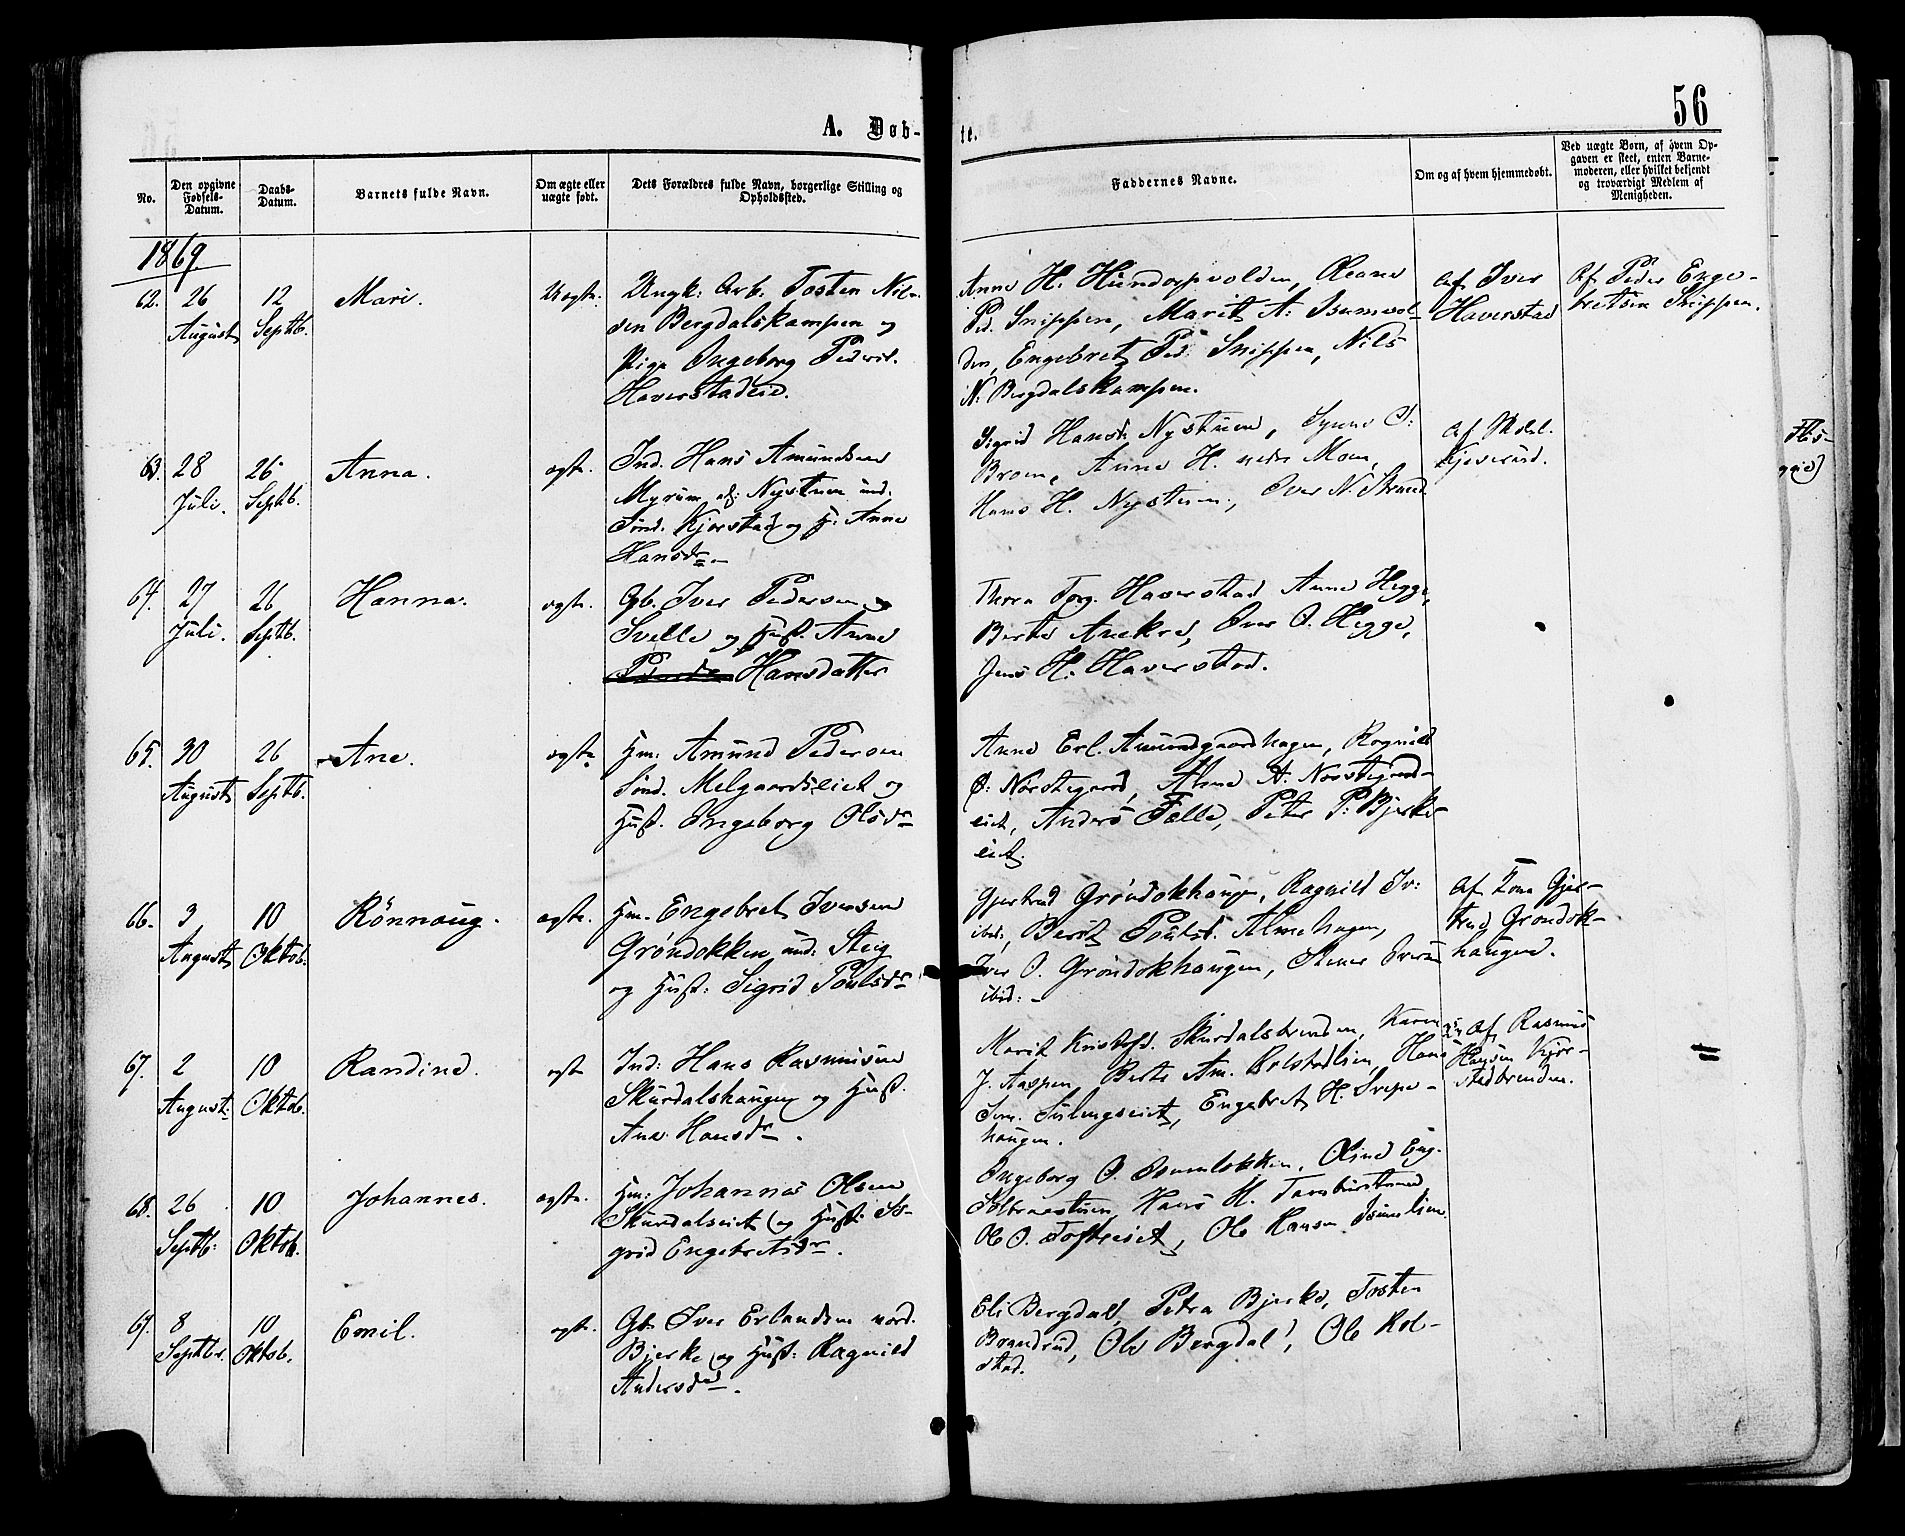 56
A. Døb-
te.
No.
Den opgivne Fødsels-Datum.
Daabs-Datum.
Barnets fulde Navn.
Om ægte eller uægte født.
Dets Forældres fulde Navn, borgerlige Stilling og Opholdssted.
Faddernes Navne.
Om og af hvem hjemmedøbt.
Ved uægte Børn, af hvem Op-
gaven er skeet, enten Barne-
moderen, eller hvilket bekjendt
og troværdigt Medlem af
Menigheden.
1869
62. 26 August 12 Septb. Mari. Uægte.
Ungk: Arb. Tosten Nil-
sen Bergdalskampen og
Pige Ingeborg Pedersd.
Haverstadeie.
Anne H. Hundorpvolden, Oleana
Ped. Snippen, Marit A:
den, Engebret Ped. Snippen, Nils
N. Bergdalskampen.
Af Iver
Haverstad
Af Peder Enge-
bretsen Snippen.
63. 28 Juli. 26 Septb. Anna. ægte.
Ind. Hans Amundsen
Myrum af: Nystuen und.
Sønd. Kjorstad og H: Anne
Hansdr.
Sigrid Hansd. Nystuen, Synne
Broen, Anne H. nedre Moen,
Hans H. Nystuen, Iver N. Strand
Af
64. 27 Juli. 26 Septb. Hanna. ægte.
Gb. Iver Pedersen
Svelle og Hust. Anne
Hansdatter
Thora Torg. Haverstad Anne Hegge,
Berte Anekre, Iver O. Hegge,
Jens H. Haverstad.
65. 30 August 26 Septb. Ane. ægte
Hm: Amund Pedersen
Sønd. Melgaardseiet og
Hust. Ingeborg Olsdr
Anne Erl. Amundgaardhagen, Rognild
Ø: Norstegard, Alme A: Norstegards-
eiet, Anders Fælle, Peter P: Bjerke-
eiet.
66. 3 August 10 Oktob. Rönnoug. ægte.
Hm. Engebret Iversen
Gröndokken und: Steig
og Hust: Sigrid Poulsdr
Gjertrud Gröndokhaugen, Ragnild Iv:
ibid:, Berit Poulsd. Almehagen,
Iver O. Gröndokhaugen,
ibid: -
Af Kone Gjer-
trud Gröndok-
haugen.
67. 2 August: 10 Oktob. Randine. ægte
Ind: Hans Rasmusen
Skurdalshaugen og Hust.
Ane Hansdr.
Marit Kristofd. Skurdalsbrenden, Karen
J. Aaspen, Berte Am. Kolstadlien, Hans
Sim. Sulengseiet, Engebret H.
haugen.
Af Rasmus
Hansen Kjor-
stadbrenden.
68. 26 Septb: 10 Oktob. Johannes. ægte.
Hm: Johannes Olsen
Skurdalseiet og Hust: Si-
grid Engebretsdr.
Ingeborg O. Isumlokken, Oline Eng.
Solbraastuen, Hans H.
Ole O. Tofteeiet, Ole Hansen Isumlien.
69. 8 Septbr. 10 Oktob. Emil. ægte.
Gb. Iver Erlandsen nord.
Bjerke og Hust: Ragnild
Andersd.
Eli Bergdal, Petra Bjerke, Tosten
Brandrud, Ole Bergdal, Ole Kol-
stad.